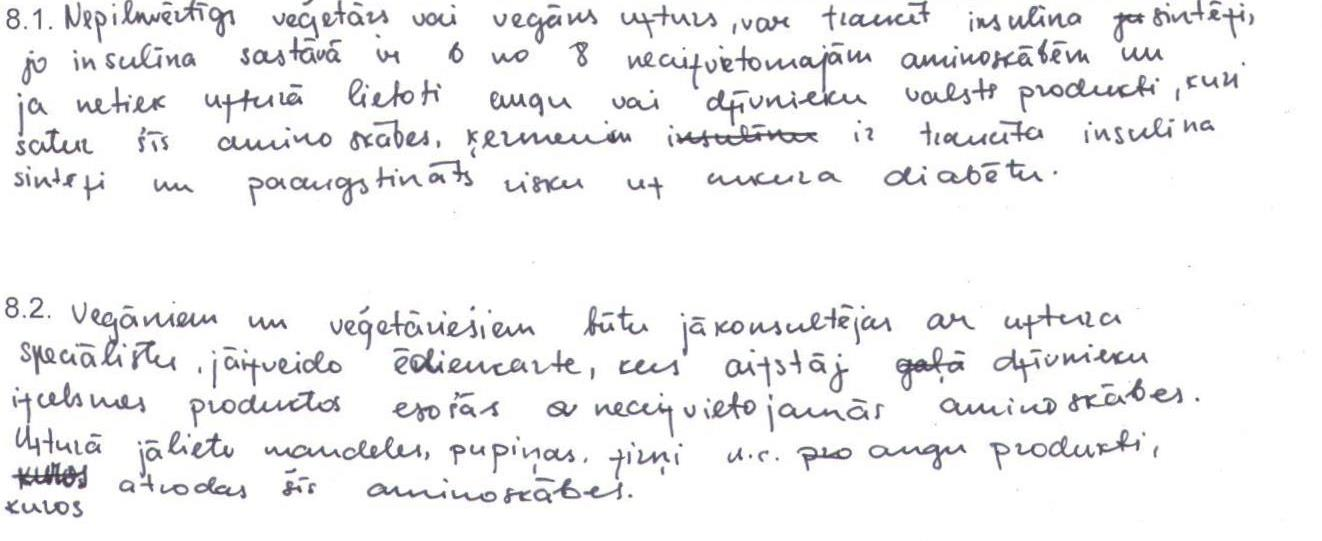 8.1. Nepilnvērtīgs veģetārs vai vegāns uzturs, var traucēt insulīna sintēzi,
jo insulīna sastāvā ir 6 no 8 neaizvietomajām aminoskābēm un
ja netiek uzturā lietoti augu vai dzīvnieku valsts produkti, kuri
satur šīs aminoskābes, ķermenim insulīna ir traucēta insulīna
sintēzi un paaugstināts risku uz cukura diabētu.
8.2. Vegāniem un veģetāriešiem būtu jākonsultējas ar uztura
speciālistu, jāizveido ēdienkarte, kas aizstāj gaļā dzīvnieku
izcelsmes produktos esošās neaizvietojamās aminoskābes.
Uzturā jālieto mandeles, pupiņas, zirņi u.c. pro augu produkti,
kuros atrodas šīs aminoskābes.
kuros